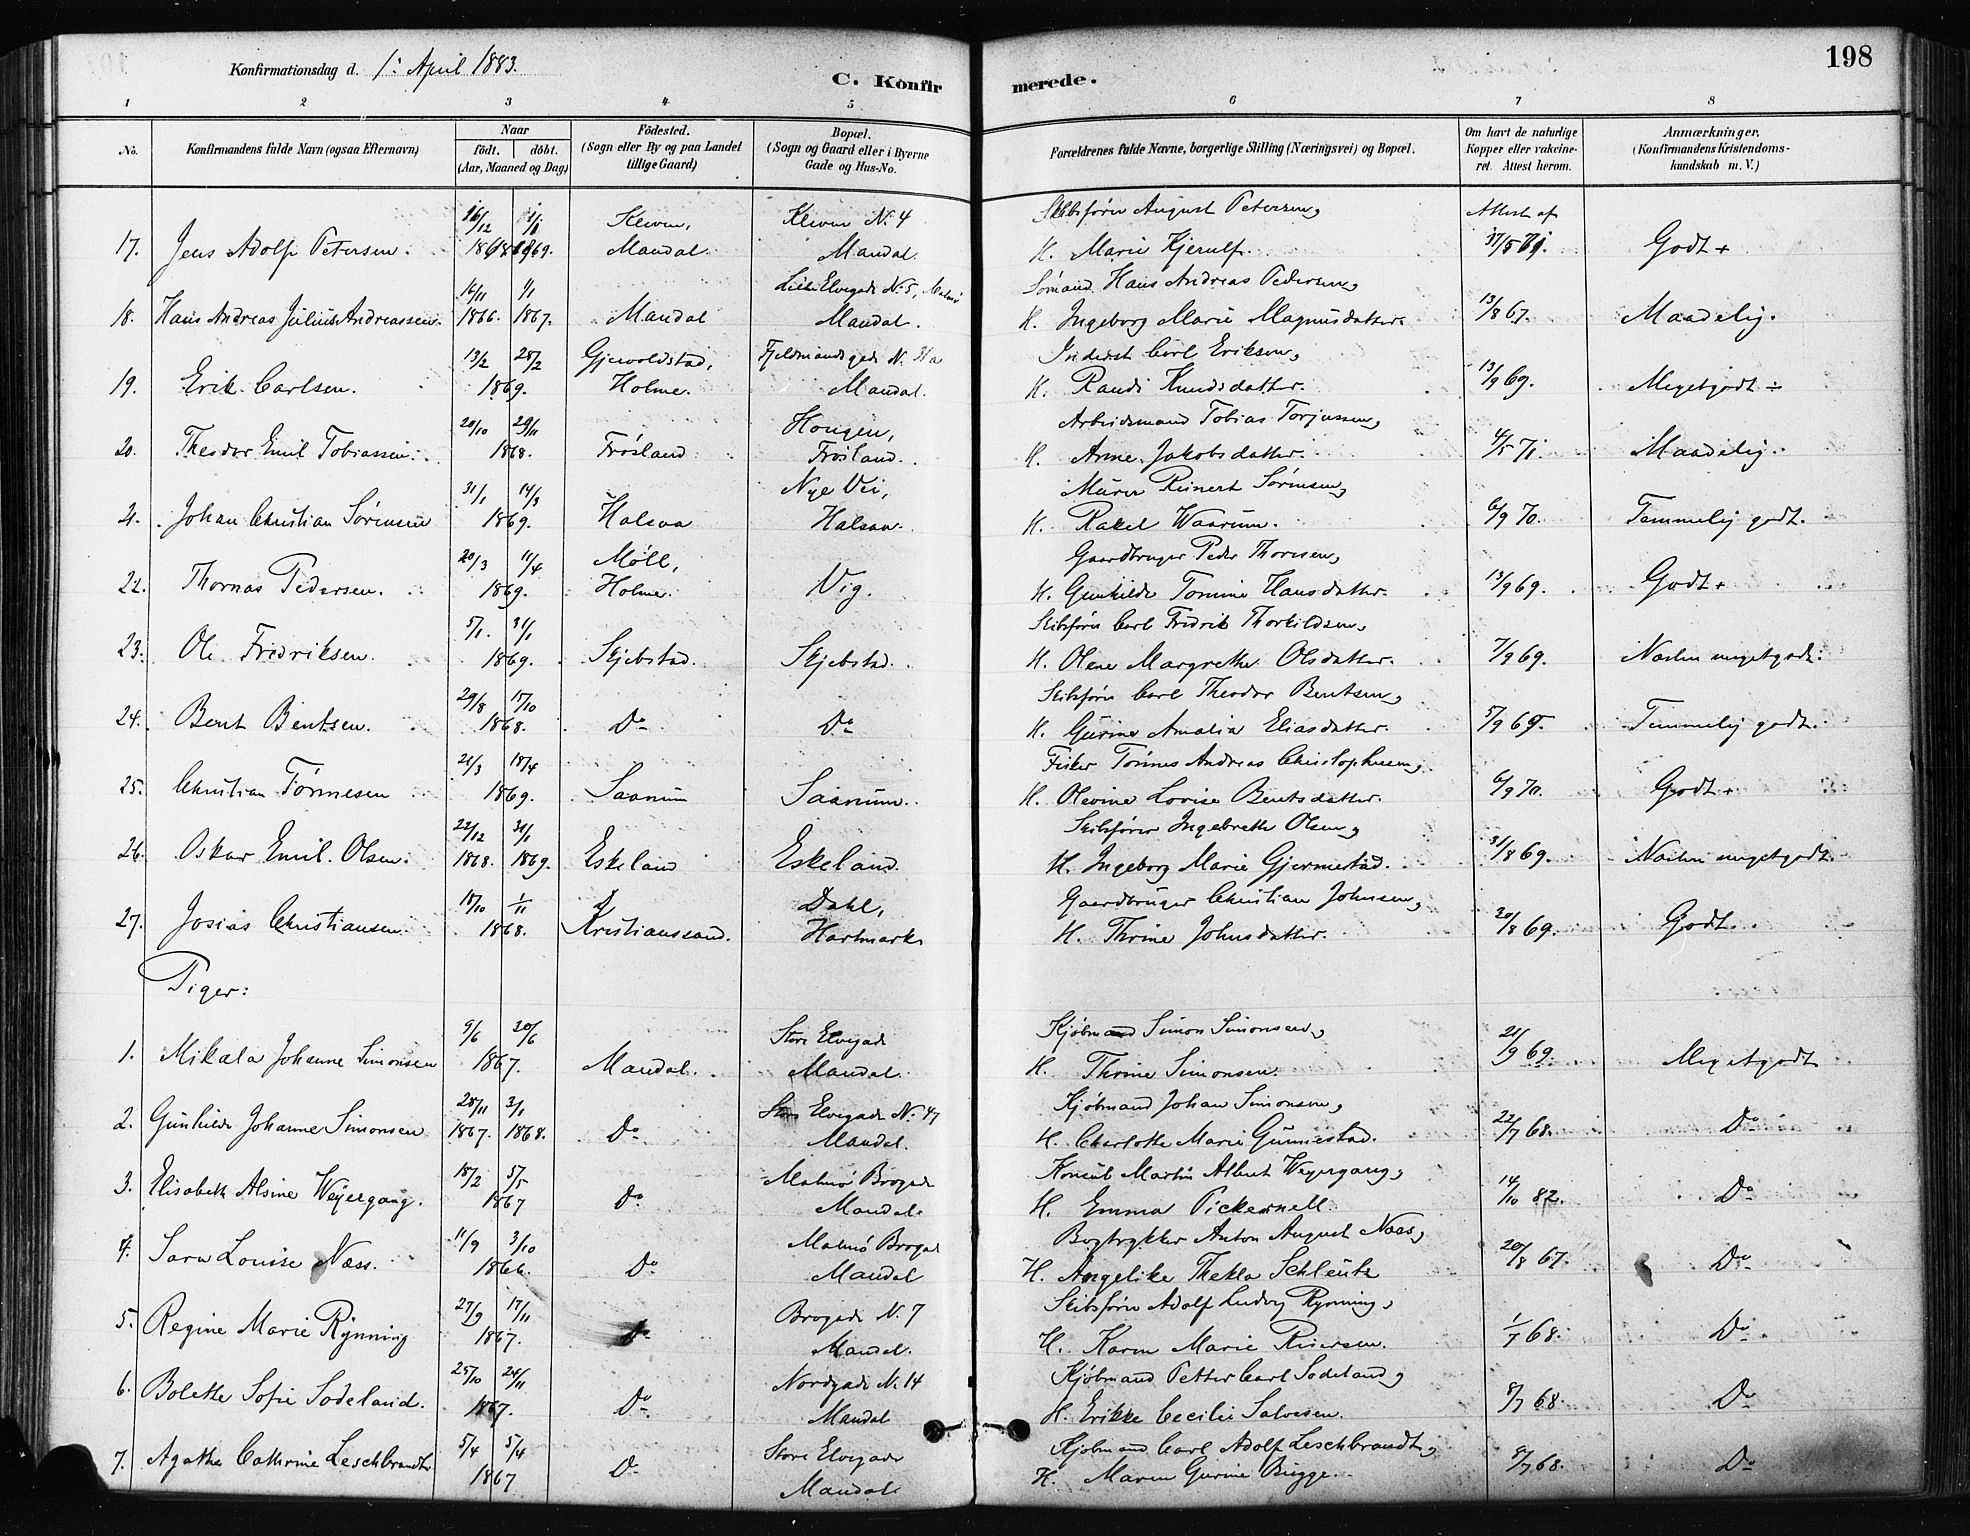 198
Konfirmationsdag d. 1. April 1883.
C. Konfirmerede.
1 2 3 4 5 6 7 8
No.
Konfirmandens fulde Navn (ogsaa Efternavn)
Naar
födt. döbt.
(Aar, Maaned og Dag)
Födested.
(Sogn eller By og paa Landet
tillige Gaard)
Bopæl.
(Sogn og Gaard eller i Byerne
Gade og Hus-No.
Forældrenes fulde Navne, borgerlige Stilling (Næringsvei) og Bopæl.
Om havt de naturlige
Kopper eller vakcine-
ret. Attest herom.
Anmærkninger.
(Konfirmandens Kristendoms-
kundskab m. V.)
16/12 Kleven, Kleven No. 4 Skibsfører August Petersen, Attest af
17. Jens Adolf Petersen. 1869. Mandal. Mandal. H. Marie Kjerulf. Godt +
14/11 1/1 Lille Elvegade No. 5, Malmö Sömand Hans Andreas Pedersen,
18. Hans Andreas Julius Andreassen. 1866. 1867. Mandal Mandal. H. Ingeborg Marie Magnusdatter. 13/8 67. Maadelig.
13/2 28/2 Gjervoldstad, Fjeldmandsgade N. 31a Inderst Carl Eriksen,
19. Erik Carlsen. 1869. Holme. Mandal. H. Randi Knudsdatter. 13/9 69. Megetgodt ÷
20/10 29/11 Hougen, Arbeidsmand Tobias Torjussen,
20. Theodor Emil Tobiassen. 1868. Fröisland Fröisland. H. Anne Jakobsdatter. 4/5 71. Maadelig.
31/1 14/3 Nye Vei, Murer Reinert Sörensen,
21. Johan Christian Sörensen 1869. Halsaa Halsaa. H. Rakel Waarum. 6/9 70. Temmelig godt.
20/3 11/4 Möll, Gaardbruger Peder Thorsen,
22. Thomas Pedersen. 1869. Holme. Vig. H. Gunhilde Tomine Hansdatter. 13/9 69. Godt +
5/1. 31/1 Skibsfører Carl Fredrik Thorkildsen,
23. Ole Fredriksen. 1869. Skjebstad. Skjebstad. H. Olene Margrethe Olsdatter. 7/9 69. Næsten megetgodt.
29/8 17/10 Skibsfører Carl Theodor Bentsen,
24. Bent Bentsen. 1868. Do Do H. Gurine Amalia Eliasdatter. 5/9 69. Temmelig godt.
21/3 18/4 Fisker Tönnes Andreas Christophersen,
25. Christian Tönnesen 1869. Saanum Saanum. H. Olevine Lovise Bentsdatter. 6/9 70. Godt +
22/12 31/1 Skibsfører Ingebreth Olsen,
26. Oskar Emil Olsen. 1868. 1869. Eskeland Eskeland. H. Ingeborg Marie Gjermestad. 31/8 69. Næsten megetgodt.
18/10 1/11 Dahl, Gaardbruger Christian Johnsen,
27. Josias Christiansen. 1868. Kristianssand. Hartmark H. Thrine Johnsdatter. 20/8 69. Godt
Piger:
9/6 20/6 Store Elvegade Kjöbmand Simon Simonsen,
1. Mikala Johanne Simonsen 1867. Mandal. Mandal. H. Thrine Simonsen. 21/9 69. Megetgodt
28/11 3/1 Store Elvegade No. 47 Kjöbmand Johan Simonsen,
2. Gunhilde Johanne Simonsen 1867. 1868. Do Mandal. H. Charlotte Marie Gunnestad. 22/7 68. Do
18/2 5/5 Malmö Brogade Konsul Martin Albert Weyergang,
3. Elisabeth Alsine Weyergang. 1867 Do Mandal. H. Emma Pickernell. 14/10 82. Do
11/9 3/10 Malmö Brogade Bogtrykker Anton August Næss,
4. Sara Louise Næss. 1866. Do Mandal H. Angelike Thekla Schleutz 20/8 67. Do
27/9 17/11 Brogade N. 7 Skibsfører Adolf Ludvig Rynning,
5. Regine Marie Rynning 1867. Do Mandal. H. Karen Marie Reiersen. 1/7 68. Do
25/10 24/11 Nordgade No. 14 Kjöbmand Petter Carl Sodeland,
6. Bolette Sofie Sodeland. 1867. Do Mandal H. Erikke Cecilie Salvesen. 8/7 68. Do
5/4 5/4 Store Elvegade Kjöbmand Carl Adolf Leschbrandt,
7. Agathe Cathrine Leschbrandt 1867 Do Mandal. H. Maren Gurine Bugge. 8/7 68. Do